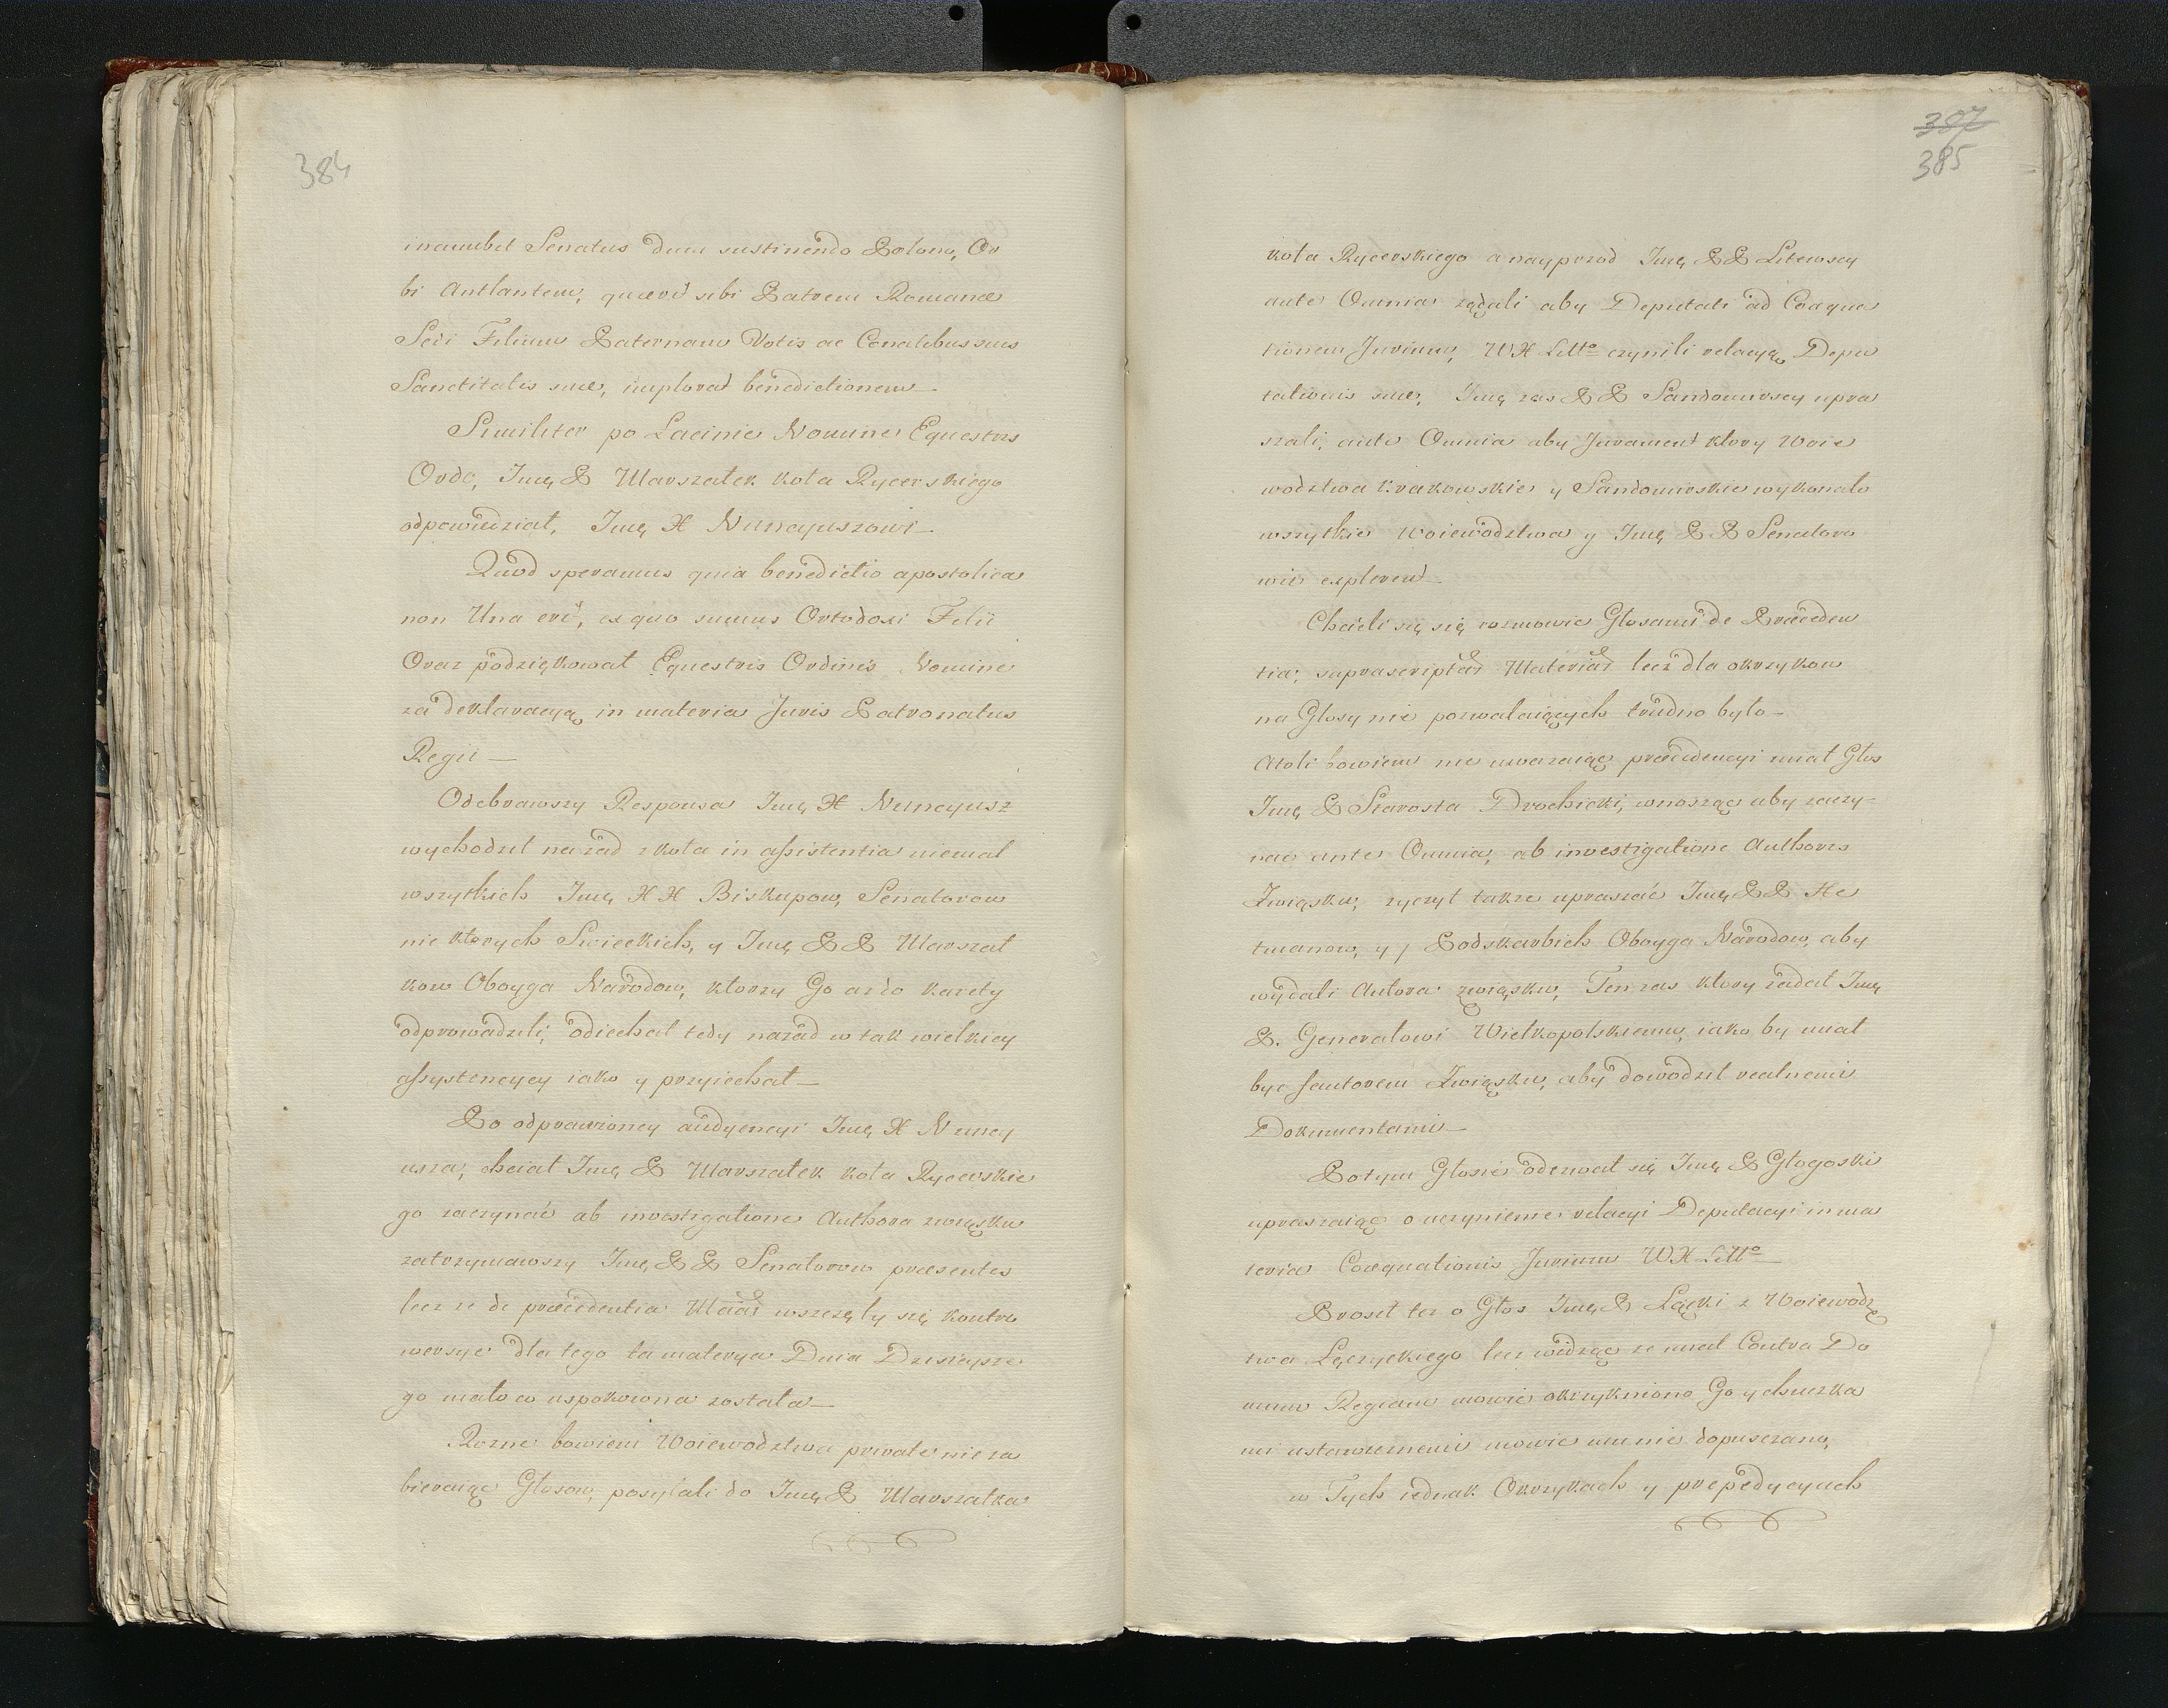 384
incumbet Senatus dum sustinendo Polono, Or
bi Antlantem, quærit sibi Patrem Romanæ
Sedi Filium Paternam Votis ac Conatibus suis
Sanctitatis suæ, implorat benedictionem
Similiter po Łacinie Nomine Equestris
Ordc, Jmę P Marszałek koła Rycerskiego
odpowiedział, Jmę X Nuncyuszowi
Quod speramus quia benedictio apostolica
non Una erit, ex quo sumus Ortodoxi Filii
Oraz podziękował Equestris Ordinis Nomine
za deklaracyą in materia Juris Patronatus
Regii
Odebrawszy Responsa Jmę X Nuncyusz
wychodził nazad z koła in assistentia niemal
wszytkich Jmę X X Biskupow, Senatorow
nie ktorych Swieckich, y Jmę P P Marszał
kow Oboyga Narodow, ktorzy Go aż do karety
odprowadzili; odiechał tedy nazad w tak wielkiey
assystencyey iako y przyiechał
Po odprawioney audyencyi Jmę X Nuncy
usza, chciał Jmę P Marszałek koła Rycerskie
go zaczynać ab investigatione Authora związku
zatrzymawszy Jmę P P Senatorow præsentes
lecz ze de præcedentia Maar wszczęły się kontro
wersye dla tego ta materya Dnia Dzisieysze
go mało co uspokoiona została
Rozne bowiem Woiewodztwa privatè nie za
bieraiąc Głosow, posyłali do Jmę P Marszałka
387
385
koła Rycerskiego a nayprzod Jmę P P Litewscy
ante Omnia ządali aby Deputati ad Coæqua
tionem Jurium, W X Litto czynili relacyą Depu
tationis suæ, Jmę zas P P Sandomirscy upra
szali, ante Omnia aby Jurament ktory Woie
wodztwa Krakowskie y Sandomirskie wykonało
wszytkie Woiewodztwa y Jmę P P Senatoro
wie expleren
Chcieli się się rozmowic Głosami de Præceden
tia, supra scriptar Materiar lecz dla okrzykow
na Głosy nie pozwalaiących trudno było
Atoli bowiem nie uwazaiąc præcedencyi miał Głos
Jmę P Starosta Drohicki, wnosząc aby zaczy-
nac ante Omnia, ab investigatione Authoris
Związku, zyczył takze upraszać Jmę P P He
tmanow, y / Podskarbich Oboyga Narodow, aby
wydali Autora związku, Ten zas ktory zadał Jmę
P. Generałowi Wielkopolskiemu, iako by miał
byc fautorem Związku, aby dowodził realnemi
Dokumentami
Po tym Głosie odezwał się Jmę P Głogoski
upraszaiąc o uczynienie relacyi Deputacyi in ma
teria Coæquationis Jurium W X Litto
Prosił tez o Głos Jmę P Łącki z Woiewodz
twa Łęczyckiego lecz widząc ze miał Contra Do
mum Regiam mowic okrzykniono Go y chuczka
mi ustawicznemi mowic mu nie dopuszczano,
w Tych iednak Okrzykach y prepedycyach